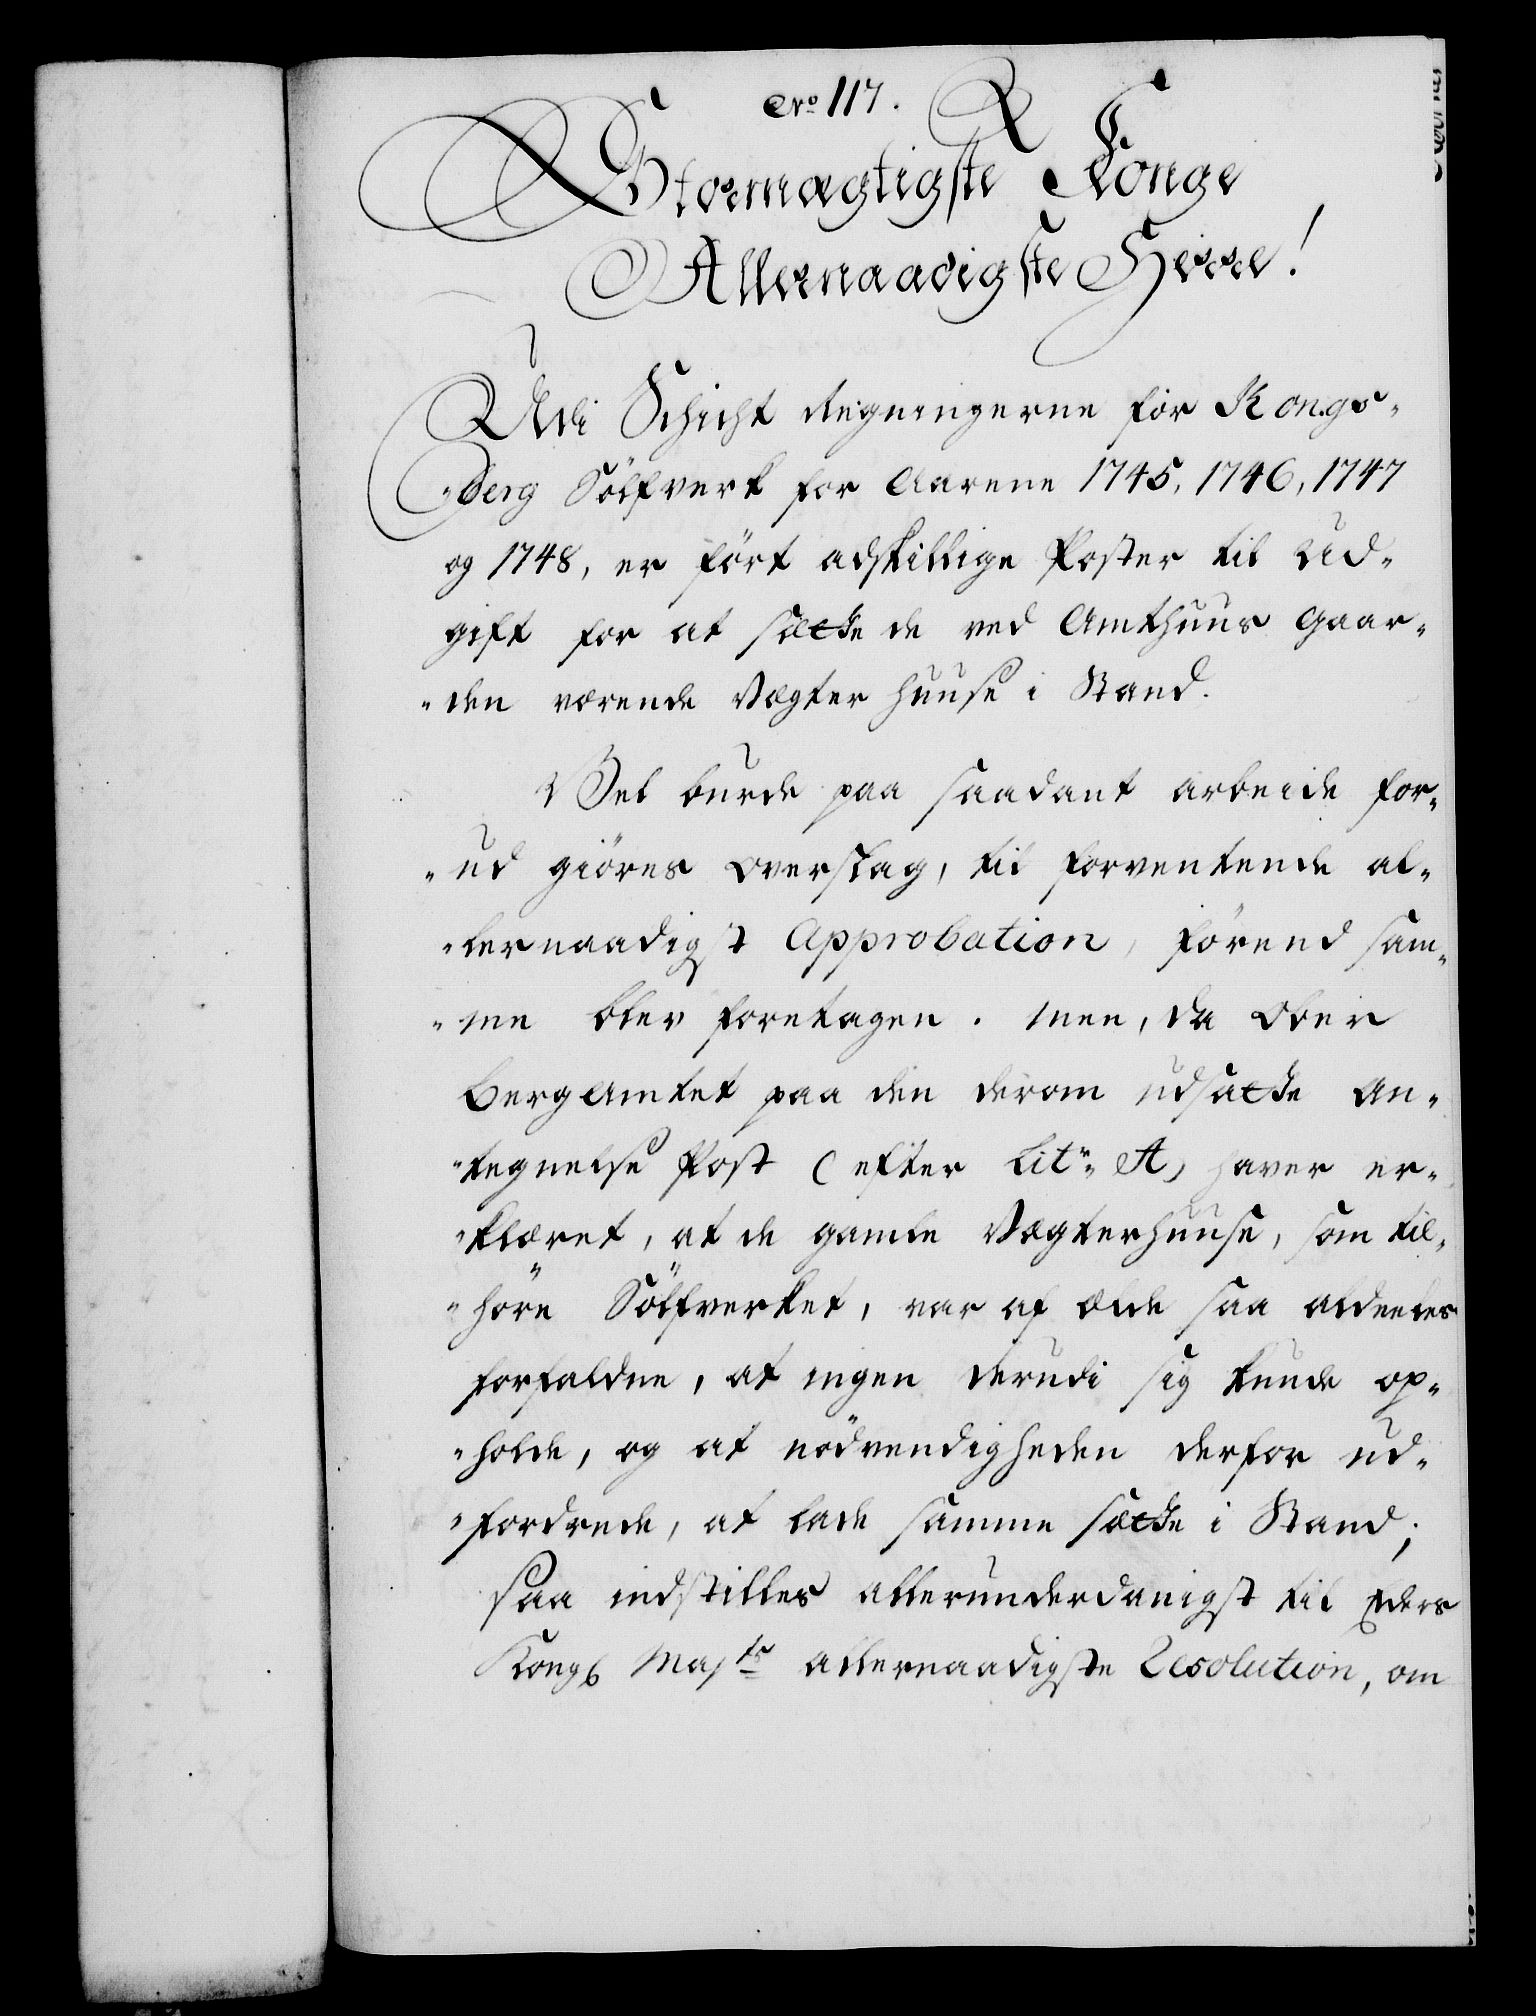 Nro 117.
Stormægtigste Konge
Allernaadigste Herre!
Udi Schicht Regningerne for Kongs-
"berg Sölfverk for Aarene 1745, 1746, 1747
og 1748, er fört adskillige Poster til Ud-
gift for at sætte de ved Amthuus Gaar-
"den værende Vægter Huuse i Stand.
Vel burde paa saadant arbeide for-
"ud giöres Overslag, til forventende al-
"lernaadigst Approbation, förend sam-
"me blev foretagen. Men, da Ober
BergAmtet paa den derom udsatte An-
"tegnelse Post (efter Litr. A) haver er-
"klæret, at de gamle Vægterhuuse, som til-
"höre Sölfverket, var af Ælde saa aldeeles
forfaldne, at ingen derudi sig kunde op-
"holde, og at nödvendigheden derfor ud-
"fordrede, at lade samme sætte i Stand;
Saa indstilles allerunderdanigst til Eders
Kongl Majts allernaadigste Resolution, om